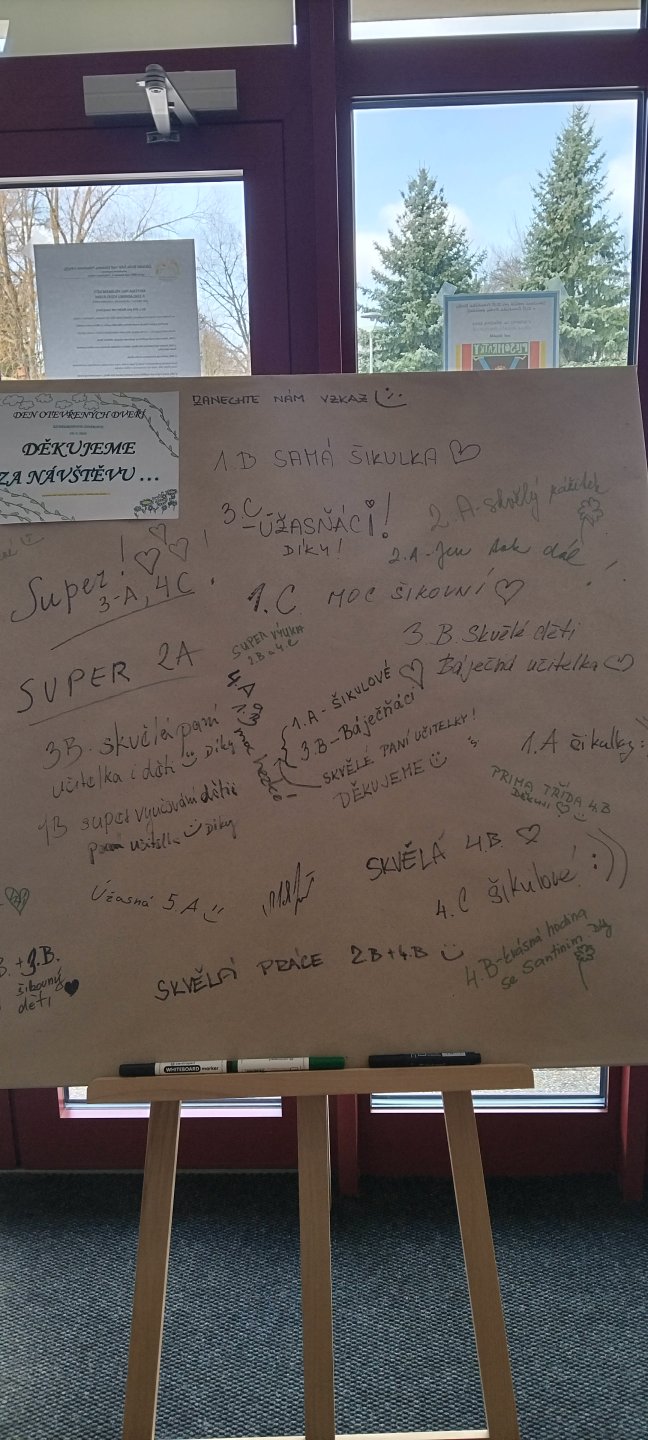 DEN OTEVŘENÝCH DVEŘÍ
DĚKUJEME
ZA NÁVŠTĚVU ...
ZANECHTE NÁM VZKAZ
1.D SAMÁ ŠIKULKA
3.C
-ÚŽASŇÁCI!
DÍKY!
2.A-skvělý zážitek
2.A-jen tak dál
Super!
3-A, 4C
1.C MOC ŠIKOVNÍ
SUPER VÝUKA
2B a 4.C
3.B. Skvělé děti
Báječná učitelka
SUPER 2A
4.A
1.A - ŠIKULOVÉ
3.B - Báječňáci
SKVĚLÉ PANÍ UČITELKY!
DĚKUJEME
3B. skvělá paní
učitelka i děti Díky
1.A šikulky
PRIMA TŘÍDA 4.B
DĚKUJI
1B super vyučování dětii
paní učitelka Díky
SKVĚLÁ 4.B
Úžasná 5.A
4.C šikulové! :))
B. + 1.B.
šikovný
děti
SKVĚLÁ PRÁCE 2B+4.B
4.B-krásná hodina
se Santiním. Díky
WHITEBOARD marker